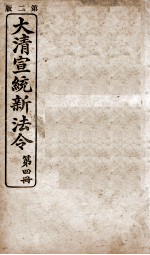 第二版
大清宣統新法令
第四冊